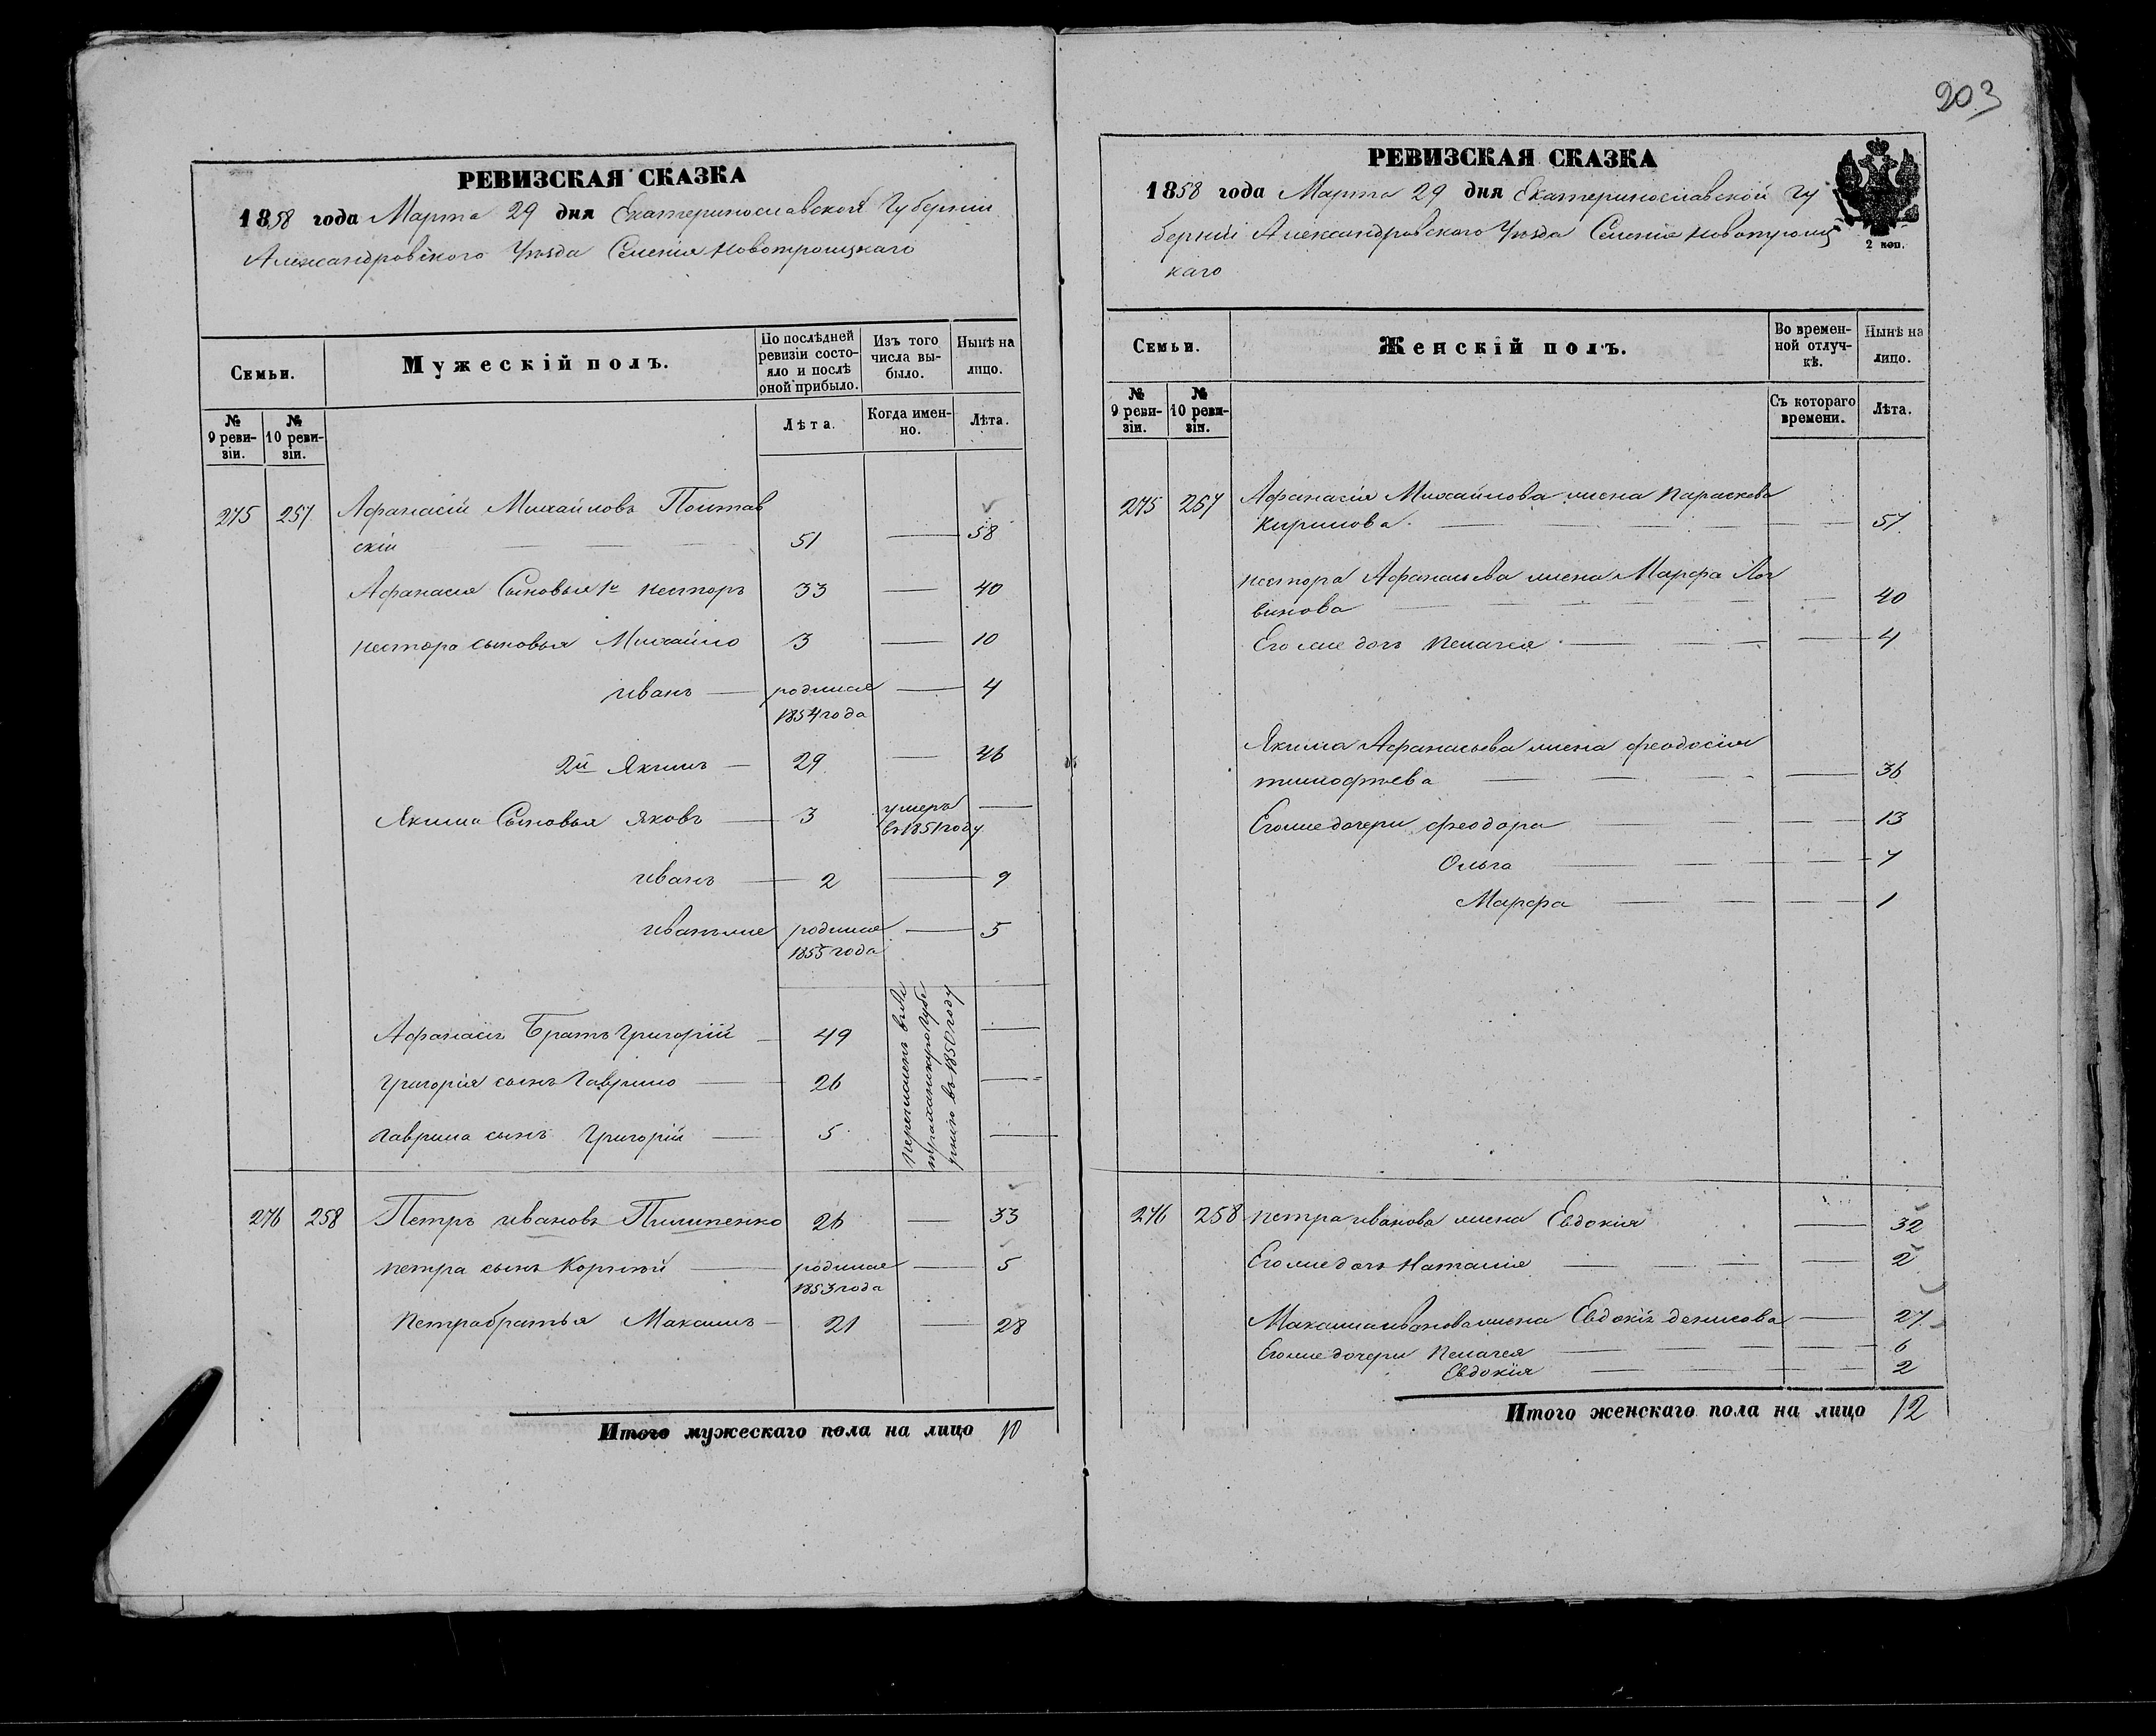 203
РЕВИЗСКАЯ СКАЗКА
1858 года Марта 29 дня Екатеринославской Губерніи
Александровского Уезда Селенія Новотроицкаго
Семьи.
Мужескій полъ.
По послѣдней ревизіи состояло и послѣ оной прибыло.
Изъ того числа выбыло.
Нынѣ на лицо.
№ 9 ревизіи.
№ 10 ревизіи.
Лѣта.
Когда именно.
Лѣта.
275 257 Афанасій Михайловъ Полтав
скій 51 — 58
Афанасія Сыновья 1й Несторъ 33 — 40
Нестора сыновья Михайло 3 — 10
Иванъ — родился — 4
1854 года
2й Якимъ — 29 — 46
Якима Сыновья Яковъ — 3 умеръ —
въ 1851 году
Иванъ — 2 — 9
Иванъ же родился — 5
1855 года
Афанасія Братъ Григорій — 49 —
Григорія сынъ Гаврило — 26 —
Гаврила сынъ Григорій — 5 —
перечисленъ въ Ас
траханскую Губе
рнію въ 1850 году
276 258 Петръ Ивановъ Пилипенко 26 — 33
Петра сынъ Корней — родился — 5
1853 года
Петра братья Максимъ — 21 — 28
Итого мужескаго пола на лицо 10
РЕВИЗСКАЯ СКАЗКА
1858 года Марта 29 дня Екатеринославской Гу
берніи Александровского Уезда Селенія Новотроиц
каго
2 коп.
Семьи.
Женскій полъ.
Во временной отлучкѣ.
Нынѣ на лицо.
№ 9 ревизіи.
№ 10 ревизіи.
Съ котораго времени.
Лѣта.
275 257 Афанасія Михайлова жена Параскева
Кирилова — 57
Нестора Афанасьева жена Марфа Лог
винова — 40
Его же дочь Пелагея — 4
Якима Афанасьева жена Феодосія
Тимофѣева — 36
Его же дочери Феодора — 13
Ольга — 7
Марфа — 1
276 258 Петра Иванова жена Евдокія — 32
Его же дочь Наталія — 2
Максима Иванова жена Евдокія Денисова — 27
Его же дочери Пелагея — 6
Евдокія — 2
Итого женскаго пола на лицо 12